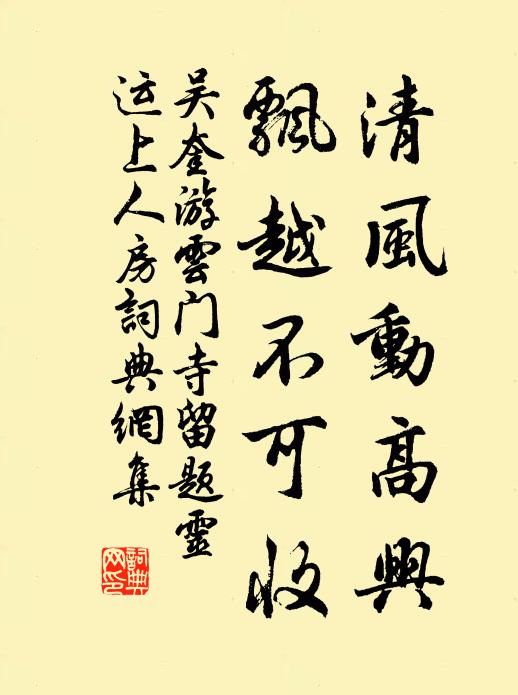 清風動高興
飄越不可收
吴奎游雲门寺留题靈
运上人房詞典網集
詞典网印